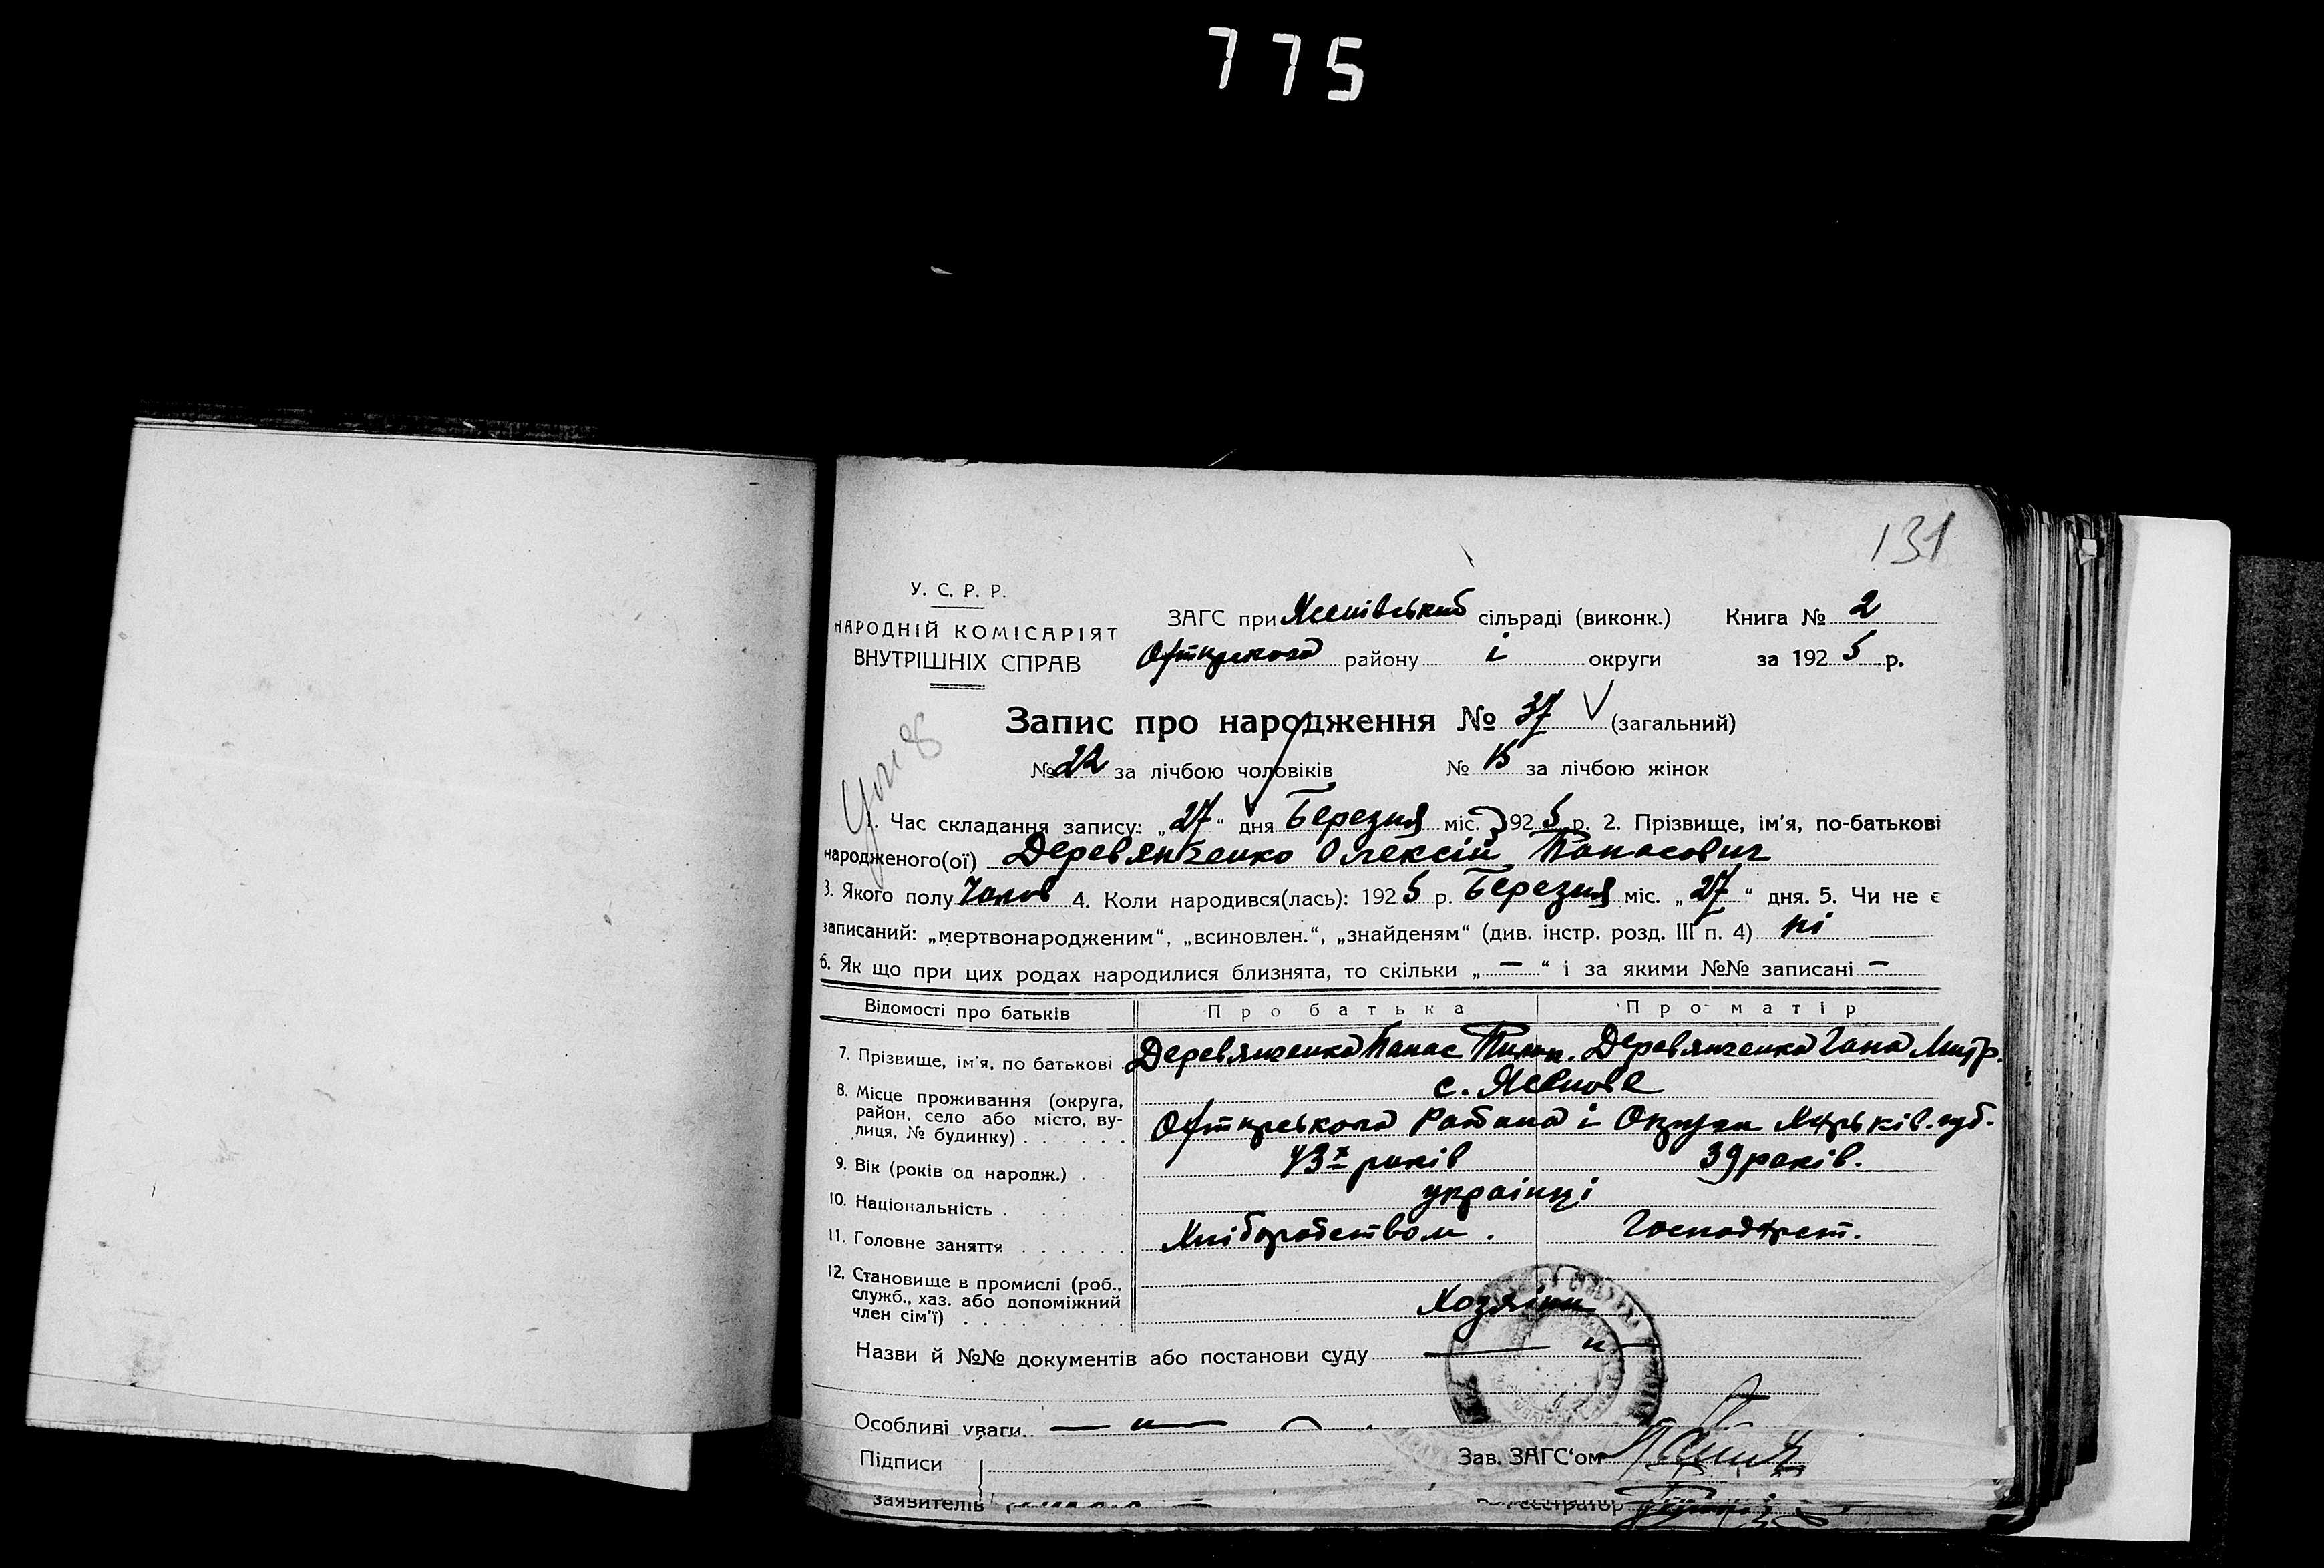 775
131
У. С. Р. Р.
НАРОДНІЙ КОМІСАРІЯТ
ВНУТРІШНІХ СПРАВ
ЗАГС при Ясенівський сільраді (виконк.) Книга № 2
Охтирского району і округи за 1925 р.
Запис про народження № 37 (загальний)
№ 22 за лічбою чоловіків № 15 за лічбою жінок
1. Час складання запису: „27“ дня Березня міс. 1925 р. 2. Прізвище, ім'я, по-батькові
народженого(ої) Деревянченко Олексій Панасович
3. Якого полу Чолов 4. Коли народився(лась): 1925 р. Березня міс. „27“ дня. 5. Чи не є
записаний: „мертвонародженим“, „всиновлен.“, „знайденям“ (див. інстр. розд. III п. 4) ні
6. Як що при цих родах народилися близнята, то скільки „ — “ і за якими №№ записані —
Відомості про батьків Про батька Про матір
7. Прізвище, ім'я, по батькові Деревянченко Панас Тим. Деревянченко Гана Митр.
с. Ясенове
8. Місце проживання (округа, район, село або місто, вулиця, № будинку) Охтирського Района і Округи Харьків. губ.
9. Вік (років од народж.) 43х років 39 років.
10. Національність українці
11. Головне заняття Хліборобством. Господарст.
12. Становище в промислі (роб., служб., хаз. або допоміжний член сім'ї) Хозяіни
Назви й №№ документів або постанови суду — „ —
Особливі уваги — „ —
Підписи
Зав. ЗАГС'ом
заявителів
Реєстратор